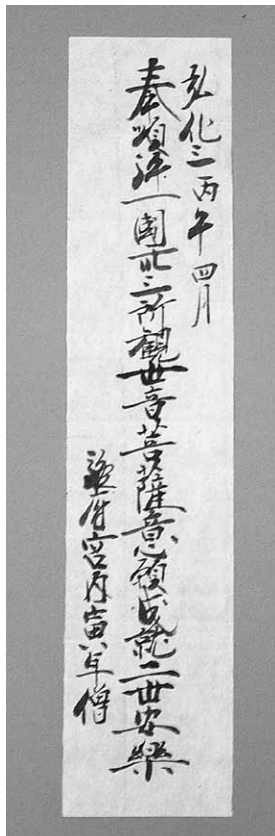 弘化三丙午四月
奉順禮一國卅三所観世音菩薩意願成就二世安樂
府宮内寅年僧